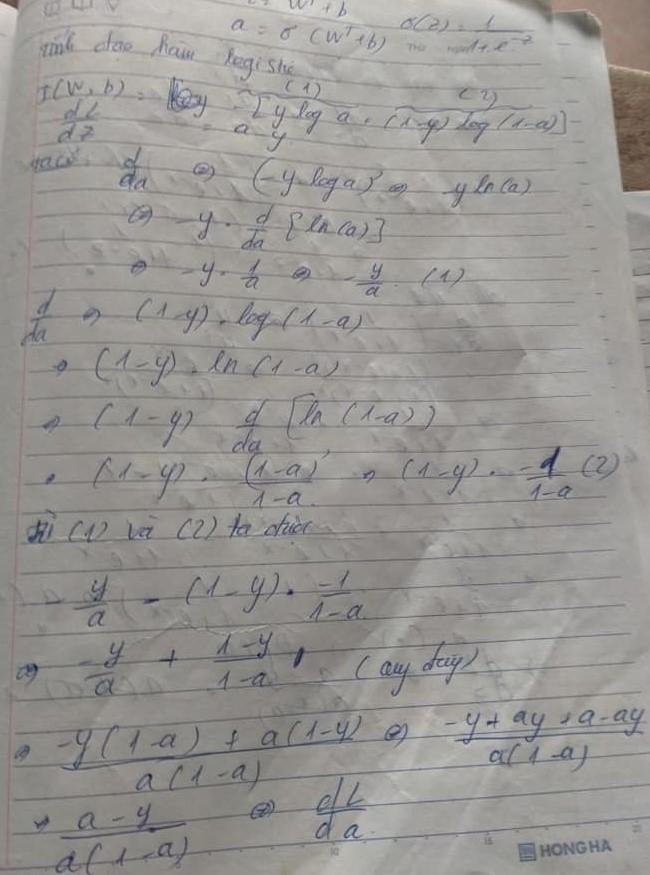 W^T + b
a = σ (W^T + b) σ(z) = 1/(1+e^-z)
tính đạo hàm logistic
(1) (2)
L(W, b) = - [y log a + (1-y) log (1-a)]
dL/dz = a - y
d/da ⇔ (-y log a)' ⇔ -y ln(a)
⇔ -y · d/da [ln(a)]
⇔ -y · 1/a ⇔ -y/a (1)
d/da ⇒ (1-y) · log (1-a)
⇒ (1-y) · ln (1-a)
⇒ (1-y) d/da [ln (1-a)]
(1-y) · (1-a)'/(1-a) ⇒ (1-y) · -1/(1-a) (2)
Từ (1) và (2) ta được
- y/a - (1-y) · -1/(1-a)
⇔ -y/a + (1-y)/(1-a)
⇒ (-y(1-a) + a(1-y))/(a(1-a)) ⇔ (-y + ay + a - ay)/(a(1-a))
⇒ (a-y)/(a(1-a)) ⇔ dL/da
10 15 20
HONG HA